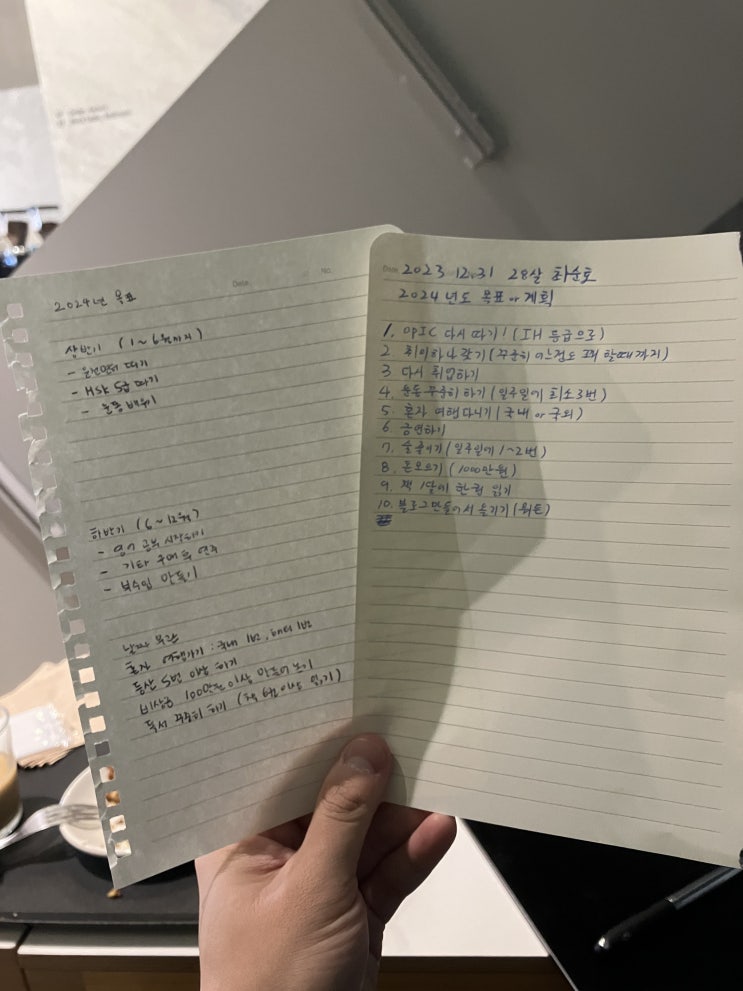 Date.
No.
2024년 목표
상반기 (1~6월까지)
- 운전면허 따기
- HSK 5급 따기
- 운동 배우기
하반기 (6~12월)
- 영어 공부 시작하기
- 기타 구매 후 연주
- 부수입 만들기
날짜 무관
혼자 여행가기 : 국내 1번, 해외 1번
등산 5번 이상 하기
비상금 100만원 이상 만들어 놓기
독서 꾸준히 하기 (책 6권 이상 읽기)
Date. 2023 12.31 28살 최순호
2024년도 목표 or 계획
1. OPIC 다시 따기! (IH 등급으로)
2. 취미하나 찾기 (꾸준히 어느정도 할때까지)
3 다시 취업하기
4. 운동 꾸준히 하기 (일주일에 최소 3번)
5. 혼자 여행다니기 (국내 or 국외)
6 금연하기
7. 술줄이기 (일주일에 1~2번)
8. 돈모으기 (1000만원)
9. 책 1달에 한권 읽기
10. 블로그만들어서 즐기기